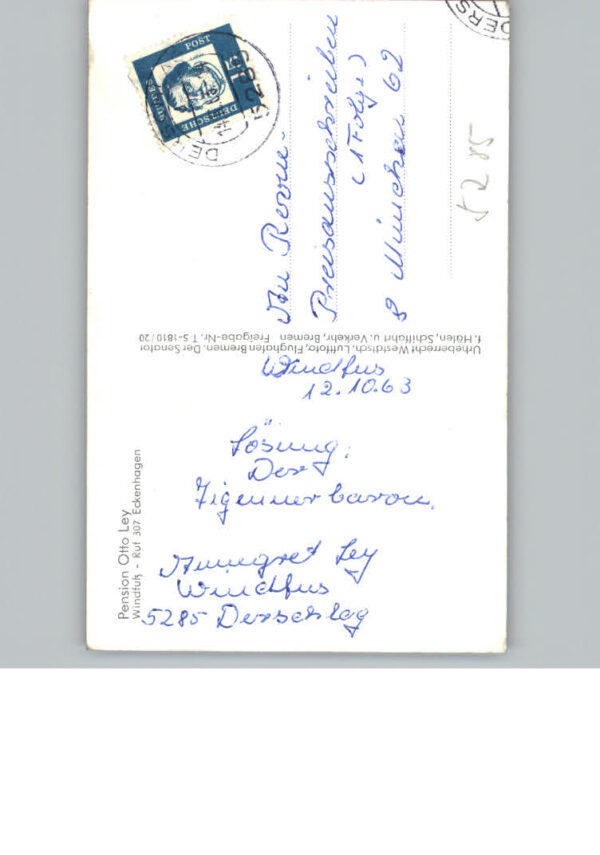 Pension Otto Ley
Windfuß - Ruf 307 Eckenhagen
Windfus
12.10.63
Lösung:
Der
Zigeunerbaron.
Annegret Ley
Windfus
5285 Derschlag
Urheberrecht Westdtsch. Luftfoto, Flughafen Bremen. Der Senator
f. Häfen, Schiffahrt u. Verkehr, Bremen Freigabe-Nr. T. S-1810/20
DEUTSCHE
BUNDES
POST
15
An Revue-
Preisausschreiben
(1 Folge)
8 München 62
5285
DERS